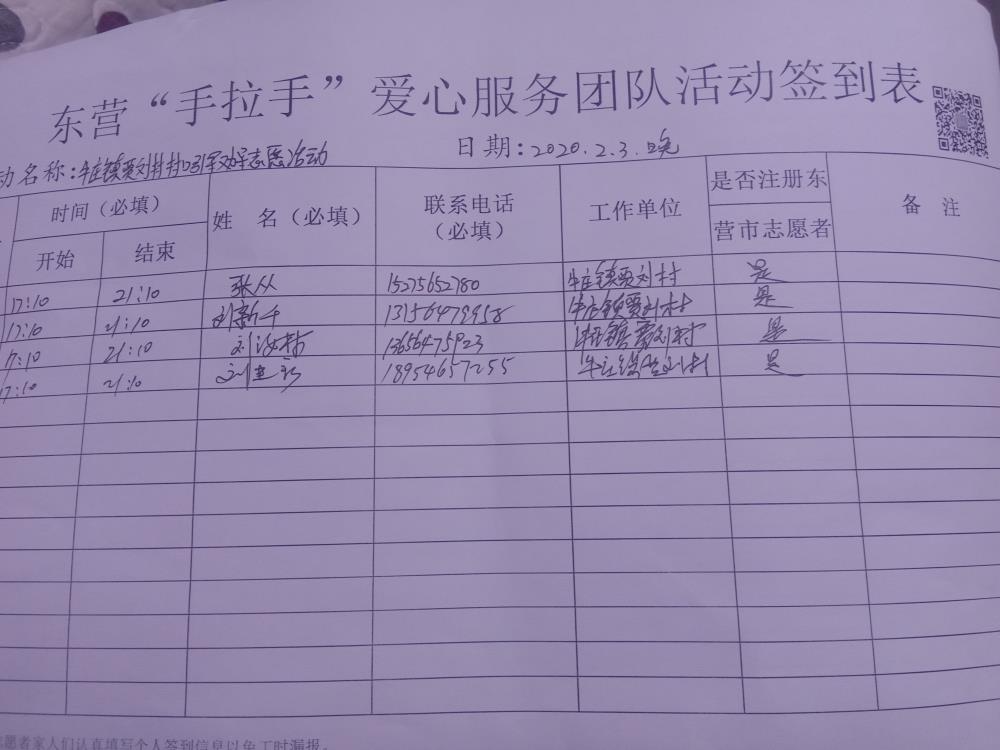 东营“手拉手”爱心服务团队活动签到表
日期:2020.2.3.晚
动名称:牛庄镇贾刘村村口引军劝好志愿活动
时间（必填） 姓 名（必填） 联系电话（必填） 工作单位 是否注册东营市志愿者 备 注
开始 结束
17:10 21:10 张从 15275652780 牛庄镇贾刘村 是
17:10 21:10 刘新千 13156479958 牛庄镇贾刘村 是
17:10 21:10 刘汝栋 13656475923 牛庄镇贾刘村 是
17:10 21:10 刘 18954657255 牛庄镇贾刘村 是
愿者家人们认真填写个人签到信息以免工时漏报。